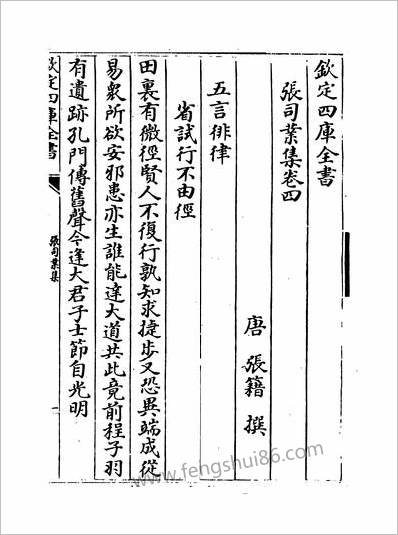 欽定四庫全書
張司業集卷四
唐 張籍 撰
五言徘律
省試行不由徑
田裏有微徑賢人不復行孰知求捷步又恐異端成從
易衆所欲安邪患亦生誰能達大道共此竟前程子羽
有遺跡孔門傳舊聲今逢大君子士節自光明
欽定四庫全書
張司業集
一
www.fengshui86.com